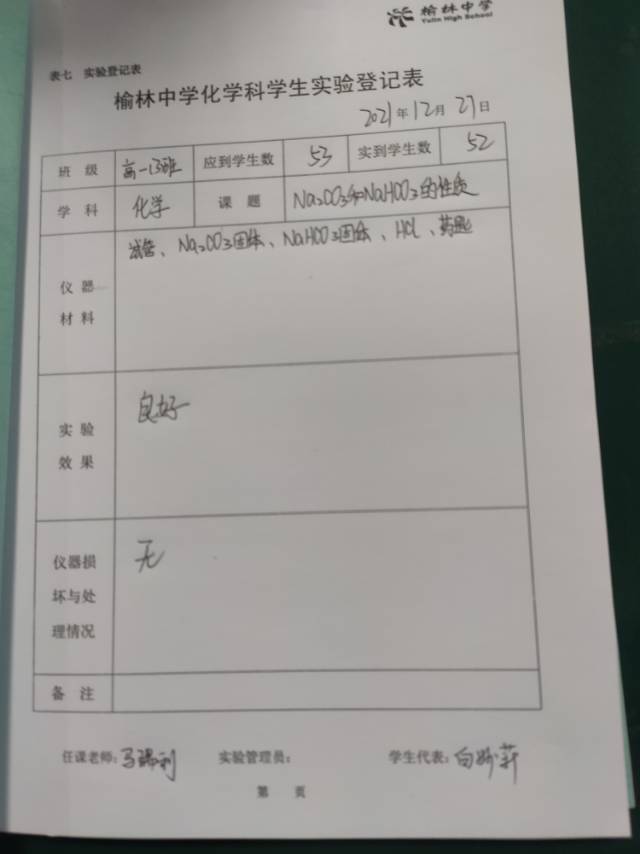 榆林中学
Yulin High School
表七 实验登记表
榆林中学化学科学生实验登记表
2021年12月27日
班 级 高一13班 应到学生数 53 实到学生数 52
学 科 化学 课 题 Na2CO3和NaHCO3的性质
试管、Na2CO3固体、NaHCO3固体、HCl、药匙
仪 器
材 料
良好
实 验
效 果
无
仪器损
坏与处
理情况
备 注
任课老师:马瑞利 实验管理员: 学生代表:向妙菥
第 页